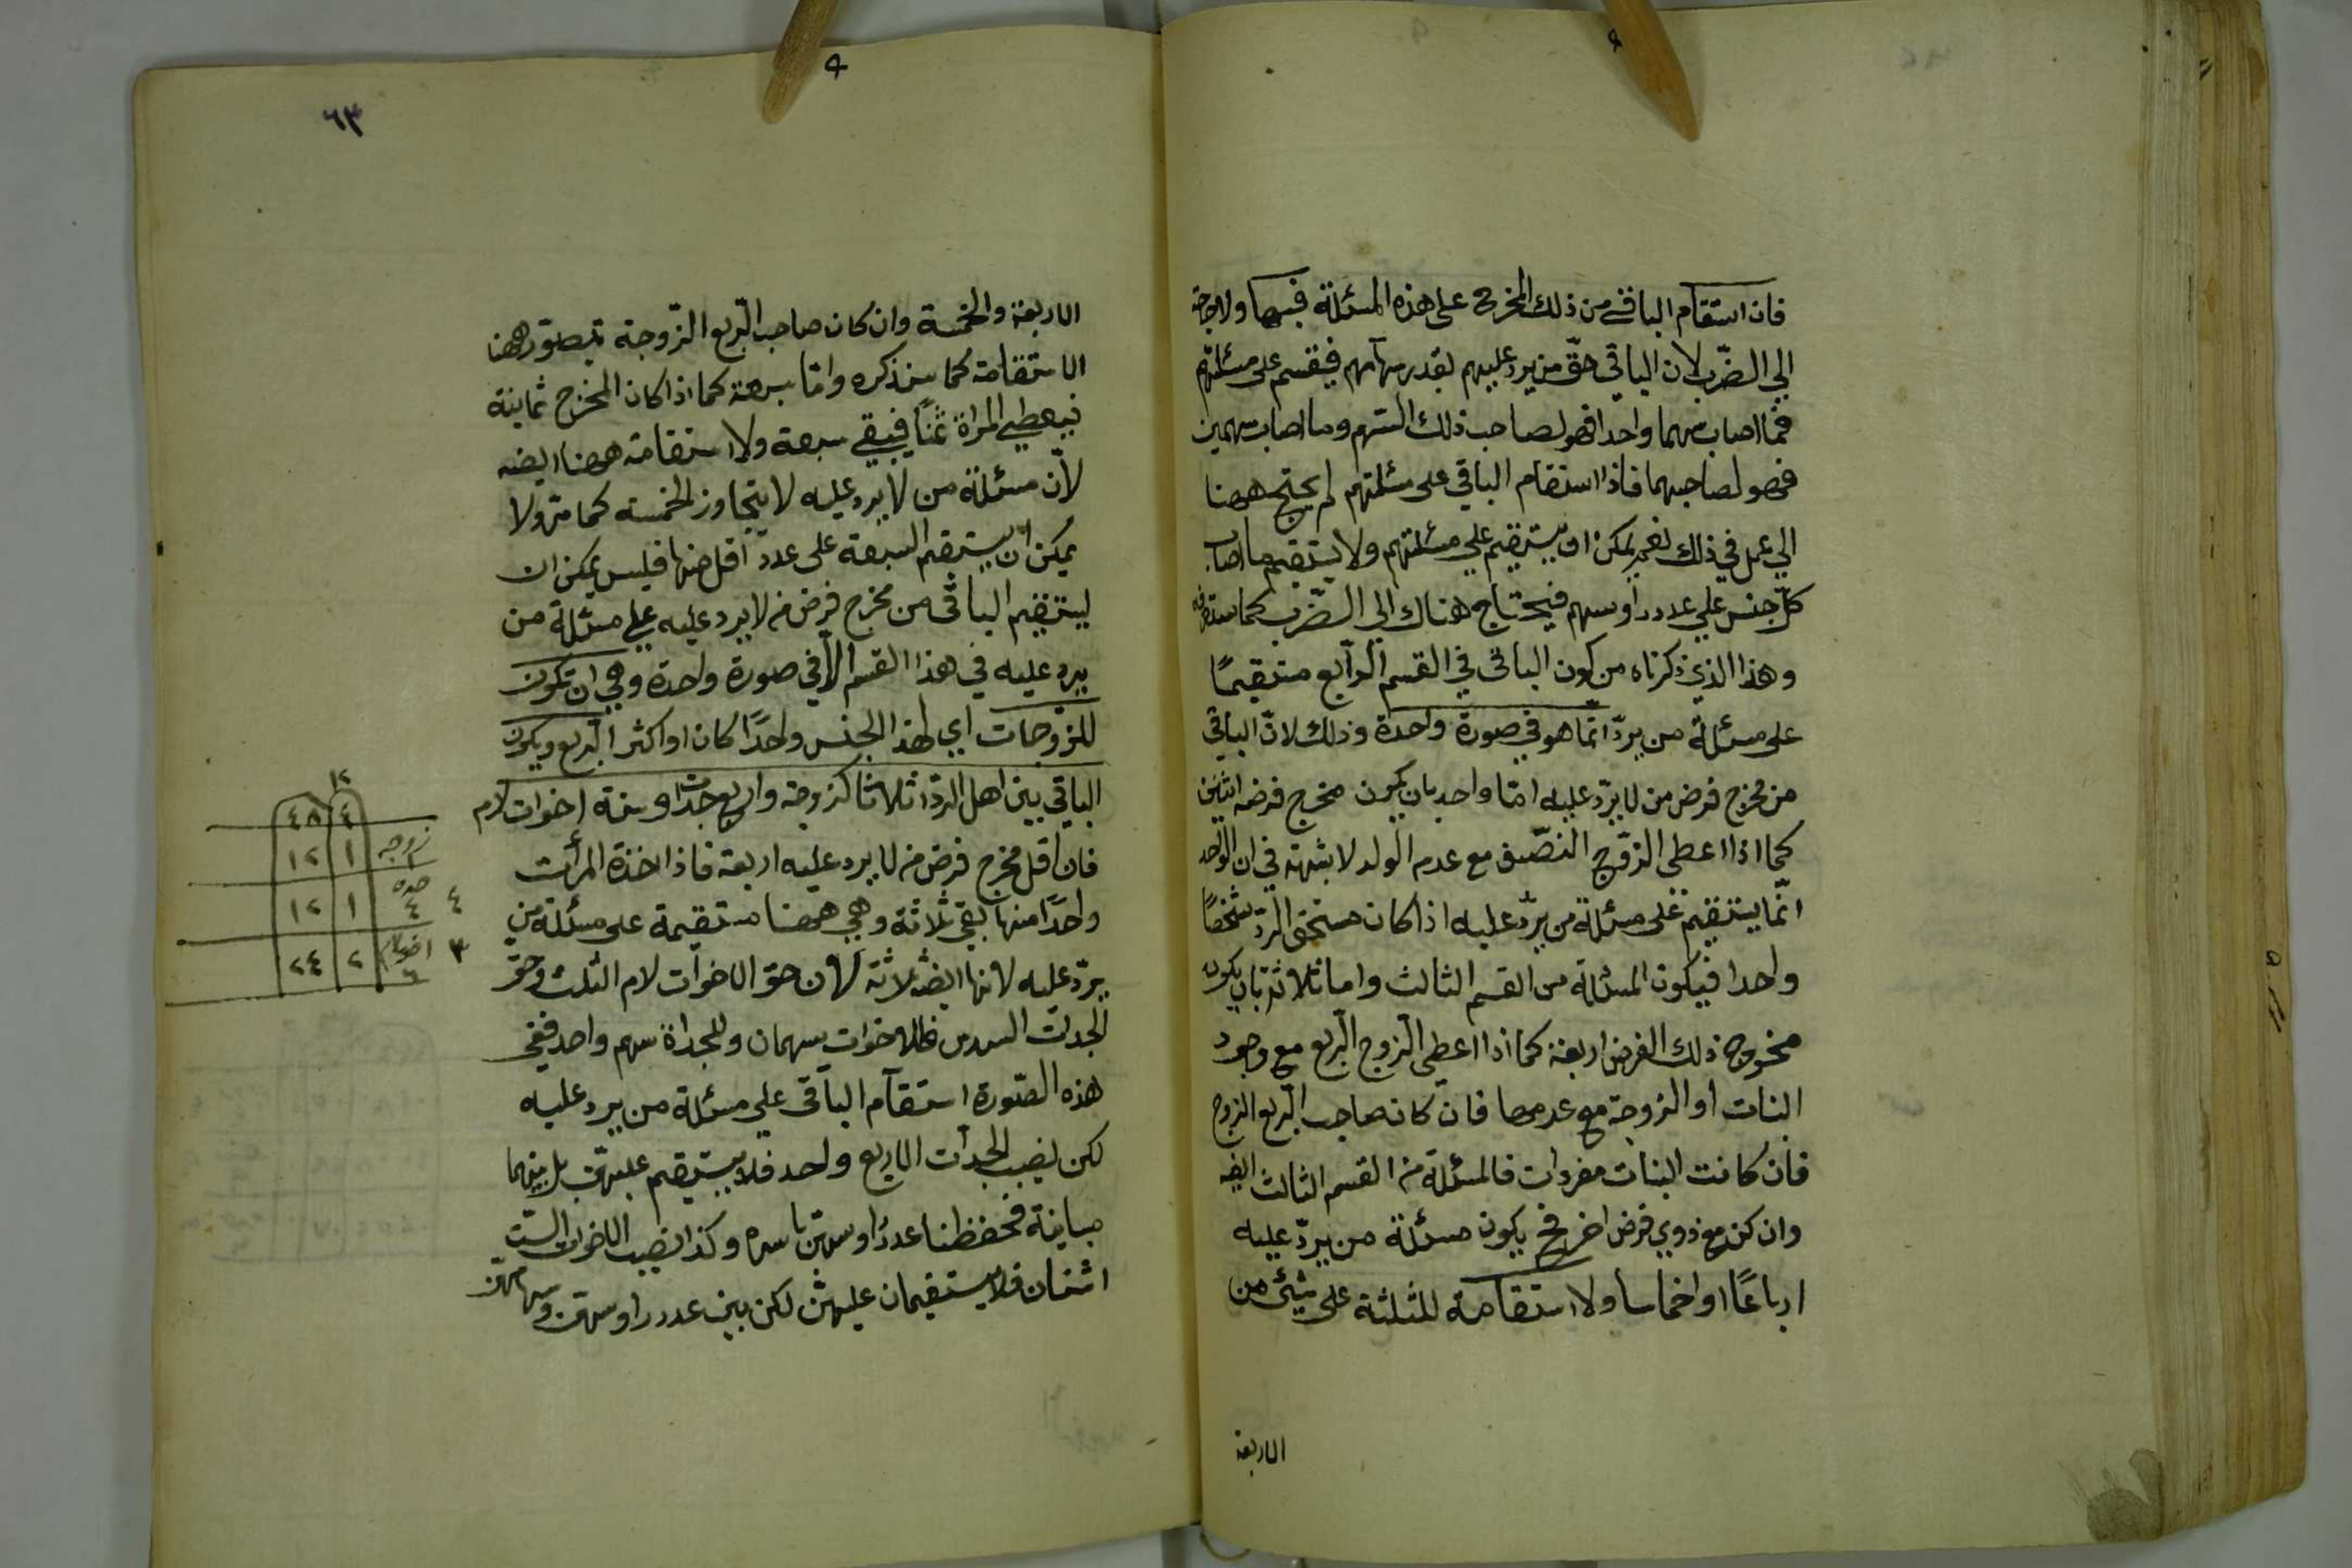 فان استقام الباقي من ذلك المخرج على هذه المسئلة فبها ولا حاجة
الي الضّرب لان الباقي حقّ من يرد عليهم بقدر سهامهم فيقسم على مسئلتهم
فما اصاب سهما واحدا فهو لصاحب ذلك السّهم وما اصاب سهمين
فهو لصاحبهما فاذا استقام الباقي على مسئلتهم لم يحتج ههنا
الي عمل في ذلك نعم يمكن ان يستقيم علي مسئلتهم ولا يستقيم ما اصاب
كلّ جنس علي عدد رأوسهم فيحتاج هناك الي الضّرب كما ستعرفه
وهذا الذي ذكرناه من كون الباقي في القسم الرّابع مستقيمًا
على مسئلة من يردّ انّما هو في صورة واحدة وذلك لانّ الباقي
من مخرج فرض من لا يردّ عليه امّا واحد بان يكون مخرج فرضه اثنين
كما اذا اعطى الزّوج النصّف مع عدم الولد لا شبهة في ان الواحد
انّما يستقيم على مسئلة من يردّ عليه اذا كان مستحق الردّ شخصًا
واحدا فيكون المسئلة من القسم الثالث واما ثلاثة بان يكون
مخروج ذلك الفرض اربعة كما اذا اعطى الزوج الربع مع وجود
البنات او الزوجة مع عدمها فان كان صاحب الرّبع الزوج
فان كانت البنات مفردات فالمسئلة من القسم الثالث ايضه
وان كن مع ذوي فرض اخر فح يكون مسئلة من يردّ عليه
ارباعًا او اخماسا ولا استقامة للثلثة على شيئ من
الاربعة
٦٣
الاربعة والخمسة وان كان صاحب الرّبع الزّوجة تيصوّر ههنا
الاستقامة كما سنذكره وامّا سبعة كما اذا كان المخرج ثمانية
فيعطي المراة ثمنًا فيبقي سبعة ولا استقامة ههنا ايضه
لانّ مسئلة من لا يرد عليه لا يتجاوز الخمسه كما مرّ ولا
يمكن ان يستقيم السبعة على عدد اقل منها فليس يمكن ان
يستقيم الباقى من مخرج فرض من لا يرد عليه علي مسئلة من
يرد عليه في هذا القسم الاّ في صورة واحدة وهي ان تكون
للزّوجات اي لهذا الجنس واحدًا كان او اكثر الربع ويكون
الباقي بين اهل الردّ اثلاثا كزوجة واربع جدّات وستة اخوات لام
فان اقل مخرج فرض من لا يرد عليه اربعة فاذا اخذة المرأت
واحدًا منها بقي ثلاثة وهي ههنا مستقيمة على مسئلة من
يردّ عليه لانها ايضه ثلاثة لان حق الاخوات لام الثلث وحق
الجدات السدس فللاخوات سهمان وللجداة سهم واحد ففي
هذه الصّورة استقام الباقى علي مسئلة من يرد عليه
لكن نصيب الجدات الاربع واحد فلا يستقيم عليهنّ بل بينهما
مباينة فحفظنا عدد رأوسهنّ باسره وكذا نصيب الاخوات السّت
اثنان فلا يستقيمان عليهنّ لكن بين عدد رأوسهنّ وسهامهنّ
١٢
٤ ٤٨
زوجه ١ ١ ١٢
٤ جده ٤ ١ ١٢
٣ اخوات لام ٦ ٢ ٢٤